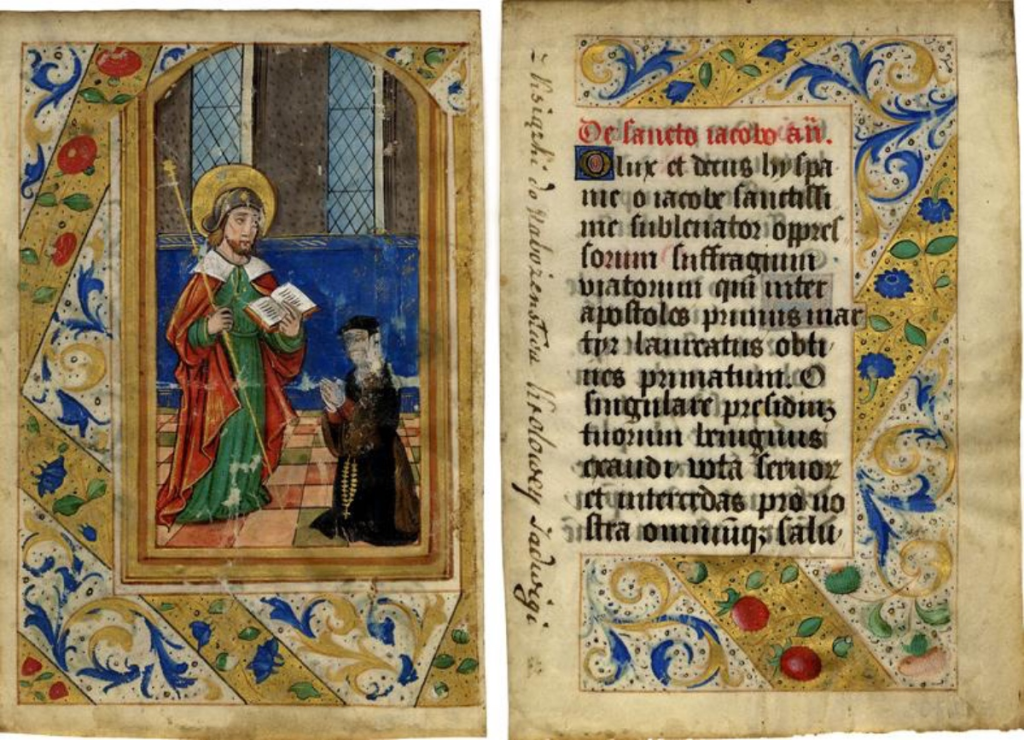 z książki do Nabożeństwa Krolowey Jadwigi
De sancto iacobo añ.
O lux et decus hyspa
nie o iacobe sanctissi
me subleuator oppres
sorum suffragium
viatorum qui inter
apostolos primus mar
tyr laureatus obti
nes primatum. O
singulare presidiuz
tuorum benignius
exaudi vota seruor
et intercedas pro no
stra omniũqz salu